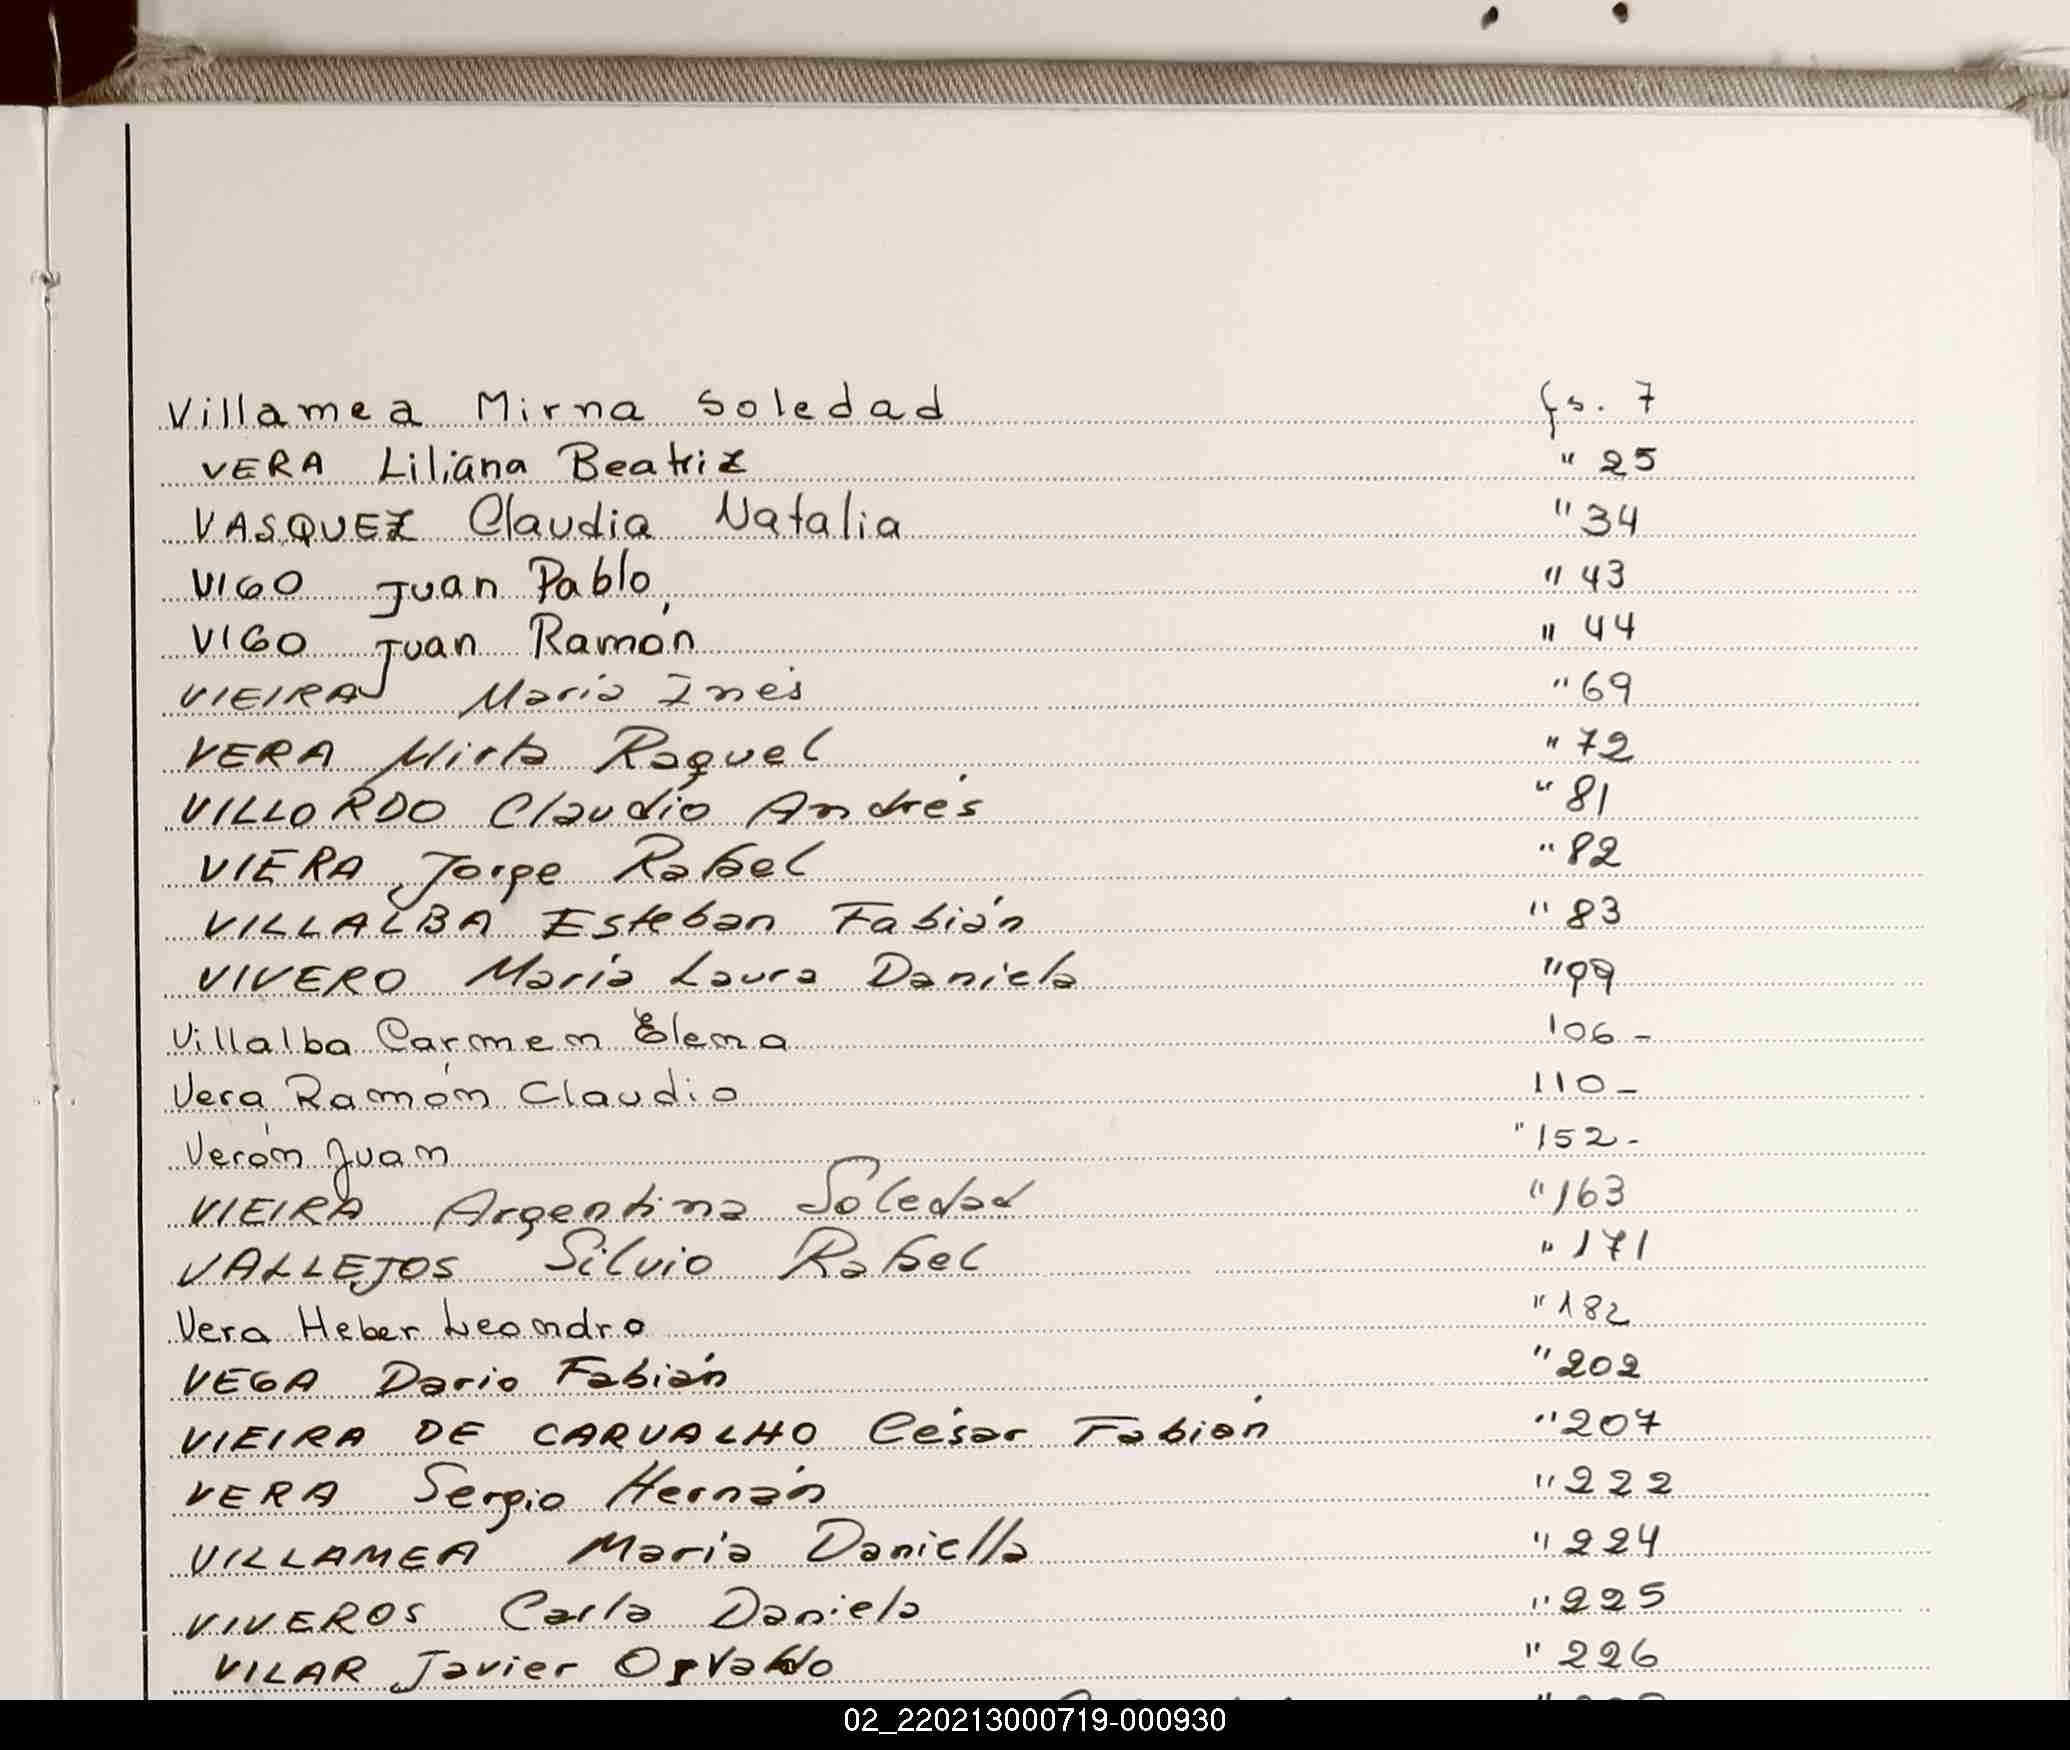 Villamea Mirna Soledad fs. 7
VERA Liliana Beatriz " 25
VASQUEZ Claudia Natalia " 34
VIGO Juan Pablo " 43
VIGO Juan Ramón " 44
VIEIRA María Inés " 69
VERA Mirta Raquel " 72
VILLORDO Claudio Andrés " 81
VIERA Jorge Rafael " 82
VILLALBA Esteban Fabián " 83
VIVERO María Laura Daniela " 99
Villalba Carmen Elena 106-
Vera Ramón Claudio 110-
Verón Juan " 152-
VIEIRA Argentina Soledad " 163
VALLEJOS Silvio Rafael " 171
Vera Heber Leandro " 182
VEGA Dario Fabián " 202
VIEIRA DE CARVALHO César Fabián " 207
VERA Sergio Hernán " 222
VILLAMEA María Daniella " 224
VIVEROS Carla Daniela " 225
VILAR Javier Osvaldo " 226
02_220213000719-000930